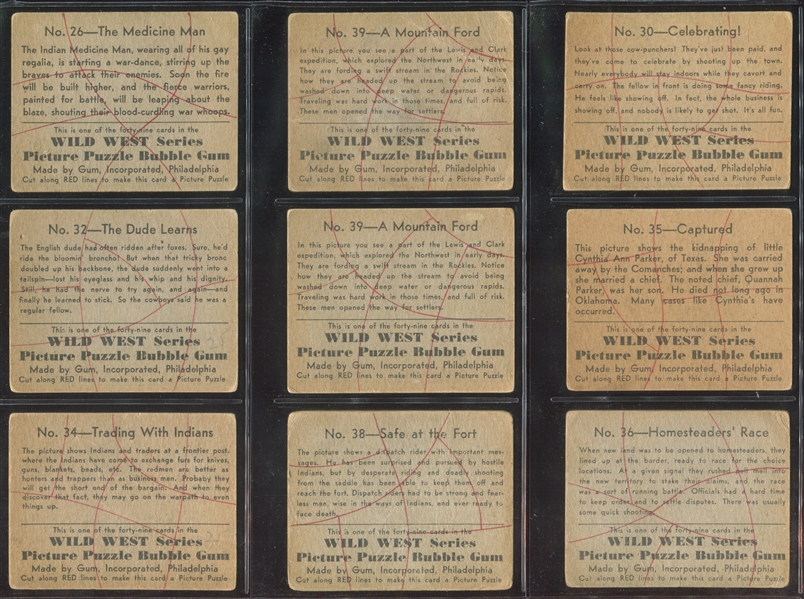 No. 26—The Medicine Man
The Indian Medicine Man, wearing all of his gay
regalia, is starting a war-dance, stirring up the
braves to attack their enemies. Soon the fire
will be built higher, and the fierce warriors,
painted for battle, will be leaping about the
blaze, shouting their blood-curdling war whoops.
This is one of the forty-nine cards in the
WILD WEST Series
Picture Puzzle Bubble Gum
Made by Gum, Incorporated, Philadelphia
Cut along RED lines to make this card a Picture Puzzle
No. 39—A Mountain Ford
In this picture you see a part of the Lewis and Clark
expedition, which explored the Northwest in early days.
They are fording a swift stream in the Rockies. Notice
how they are headed up the stream to avoid being
washed down into deep water or dangerous rapids.
Traveling was hard work in those times, and full of risk.
These men opened the way for settlers.
This is one of the forty-nine cards in the
WILD WEST Series
Picture Puzzle Bubble Gum
Made by Gum, Incorporated, Philadelphia
Cut along RED lines to make this card a Picture Puzzle
No. 30—Celebrating!
Look at those cow-punchers! They've just been paid, and
they're come to celebrate by shooting up the town.
Nearly everybody will stay indoors while they cavort and
carry on. The fellow in front is doing some fancy riding.
He feels like showing off. In fact, the whole business is
showing off, and nobody is likely to get shot. It's all fun.
This is one of the forty-nine cards in the
WILD WEST Series
Picture Puzzle Bubble Gum
Made by Gum, Incorporated, Philadelphia
Cut along RED lines to make this card a Picture Puzzle
No. 32—The Dude Learns
The English dude had often ridden after foxes. Sure, he'd
ride the bloomin' broncho! But when that tricky bronc
doubled up his backbone, the dude suddenly went into a
tailspin—lost his eyeglass and his whip and his dignity.
Still, he had the nerve to try again, and again—and
finally he learned to stick. So the cowboys said he was a
regular fellow.
This is one of the forty-nine cards in the
WILD WEST Series
Picture Puzzle Bubble Gum
Made by Gum, Incorporated, Philadelphia
Cut along RED lines to make this card a Picture Puzzle
No. 39—A Mountain Ford
In this picture you see a part of the Lewis and Clark
expedition, which explored the Northwest in early days.
They are fording a swift stream in the Rockies. Notice
how they are headed up the stream to avoid being
washed down into deep water or dangerous rapids.
Traveling was hard work in those times, and full of risk.
These men opened the way for settlers.
This is one of the forty-nine cards in the
WILD WEST Series
Picture Puzzle Bubble Gum
Made by Gum, Incorporated, Philadelphia
Cut along RED lines to make this card a Picture Puzzle
No. 35—Captured
This picture shows the kidnapping of little
Cynthia Ann Parker, of Texas. She was carried
away by the Comanches; and when she grew up
she married a chief. The noted chief, Quannah
Parker, was her son. He died not long ago in
Oklahoma. Many cases like Cynthia's have
occurred.
This is one of the forty-nine cards in the
WILD WEST Series
Picture Puzzle Bubble Gum
Made by Gum, Incorporated, Philadelphia
Cut along RED lines to make this card a Picture Puzzle
No. 34—Trading With Indians
The picture shows Indians and traders at a frontier post,
where the Indians have come to exchange furs for knives,
guns, blankets, beads, etc. The redmen are better as
hunters and trappers than as business men. Probably they
will get the short end of the bargain. And when they
discover that fact, they may go on the warpath to even
things up.
This is one of the forty-nine cards in the
WILD WEST Series
Picture Puzzle Bubble Gum
Made by Gum, Incorporated, Philadelphia
Cut along RED lines to make this card a Picture Puzzle
No. 38—Safe at the Fort
The picture shows a dispatch rider with important mes-
sages. He has been surprised and pursued by hostile
Indians, but by desperate riding and deadly shooting
from the saddle has been able to keep them off and
reach the fort. Dispatch riders had to be strong and fear-
less men, wise in the ways of Indians, and ever ready to
face death.
This is one of the forty-nine cards in the
WILD WEST Series
Picture Puzzle Bubble Gum
Made by Gum, Incorporated, Philadelphia
Cut along RED lines to make this card a Picture Puzzle
No. 36—Homesteaders' Race
When new land was to be opened to homesteaders, they
lined up at the border, ready to race for the choice
locations. At a given signal they rushed pell mell into
the new territory to stake their claims, and the race
was a sort of running battle. Officials had a hard time
to keep order and to settle disputes. There was usually
some quick shooting.
This is one of the forty-nine cards in the
WILD WEST Series
Picture Puzzle Bubble Gum
Made by Gum, Incorporated, Philadelphia
Cut along RED lines to make this card a Picture Puzzle